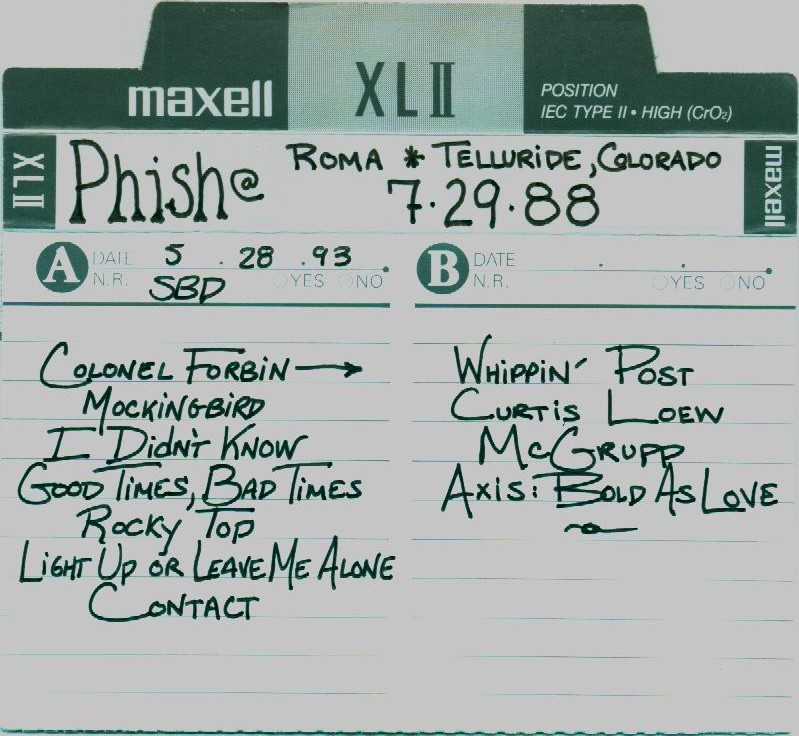 maxell
XLII
POSITION
IEC TYPE II • HIGH (CrO₂)
XLII
Phish@
ROMA * TELLURIDE, COLORADO
7·29·88
maxell
A DATE 5 . 28 . 93
N.R. SBD YES NO
B DATE . .
N.R. YES NO
COLONEL FORBIN →
MOCKINGBIRD
I DiDN'T KNOW
GOOD TIMES, BAD TIMES
ROCKY TOP
LiGHT UP OR LEAVE ME ALONE
CONTACT
WHiPPiN' POST
CURTiS LOEW
McGRUPP
AXiS: BOLD AS LOVE